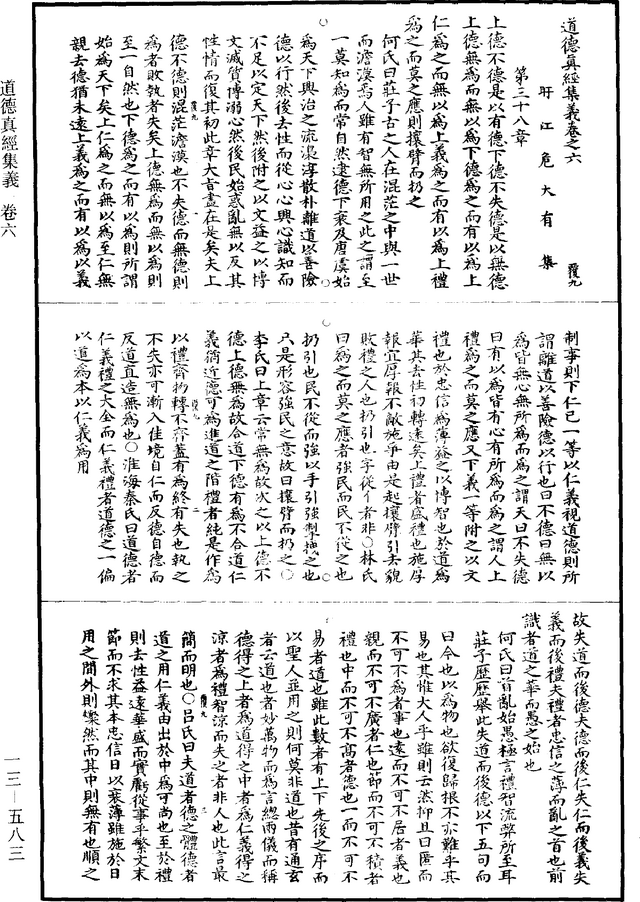 道德真經集義卷之六
盱江危大有集
覆九
第三十八章
上德不德是以有德下德不失德是以無德
上德無為而無以為下德為之而有以為上
仁為之而無以為上義為之而有以為上禮
為之而莫之應則攘臂而扔之
何氏曰莊子古之人在混茫之中與一世
而澹漠焉人雖有智無所用之此之謂至
一莫知為而常自然逮德下衰及唐虞始
為天下興治之流澆淳散朴離道以善險
德以行然後去性而從心心興心識知而
不足以定天下然後附之以文益之以博
文滅質博溺心然後民始惑亂無以反其
性情而復其初此章大旨盡在是矣夫上
德不德則混茫澹漠也不失德而無德則
為者敗執者失矣上德無為而無以為則
至一自然也下德為之而有以為則所謂
始為天下矣上仁為之而無以為至仁無
親去德猶未遠上義為之而有以為以義
制事則下仁已一等以仁義視道德則所
謂離道以善險德以行也曰不德曰無以
為皆無心無所為而為之謂天曰不失德
曰有以為皆有心有所為而為之謂人上
禮為之而莫之應又下義一等附之以文
禮也於忠信為薄益之以博智也於道為
華其去性初轉遠矣上禮者盛禮也施厚
報宜厚報不敵施爭由是起攘臂引去貌
敗禮之人也扔引也字從亻者非○林氏
曰為之而莫之應者強民而民不從之也
扔引也民不從而強以手引強掣拽之也
只是形容強民之意故曰攘臂而扔之○
李氏曰上章云常無為故次之以上德不
德上德無為故合道下德有為不合道仁
義猶近德可為進道之階禮者純是作為
以禮齊物轉不齊蓋有為終有失也執之
不失亦可漸入佳境自仁而反德自德而
反道直造無為也○淮海秦氏曰道德者
仁義禮之大全而仁義禮者道德之一偏
以道為本以仁義為用
故失道而後德失德而後仁失仁而後義失
義而後禮夫禮者忠信之薄而亂之首也前
識者道之華而愚之始也
何氏曰首亂始愚極言禮智流弊所至耳
莊子歷歷舉此失道而後德以下五句而
曰今也以為物也欲復歸根不亦難乎其
易也其惟大人乎雖則云然抑且曰匿而
不可不為者事也遠而不可不居者義也
親而不可不廣者仁也節而不可不積者
禮也中而不可不高者德也一而不可不
易者道也雖此數者有上下先後之序而
以聖人並用之則何莫非道也昔有通玄
者云道也者妙萬物而為言總兩儀而稱
德得之上者為道得之中者為仁義得之
涼者為禮智涼而失之者非人也此言最
簡而明也○呂氏曰夫道者德之體德者
道之用仁義由出於中為可尚也至於禮
則去性益遠華盛而實虧從事乎繁文末
節而不求其本忠信日以衰薄雖施於日
用之間外則粲然而其中則無有也順之
道德真經集義 卷六
一三—五八三